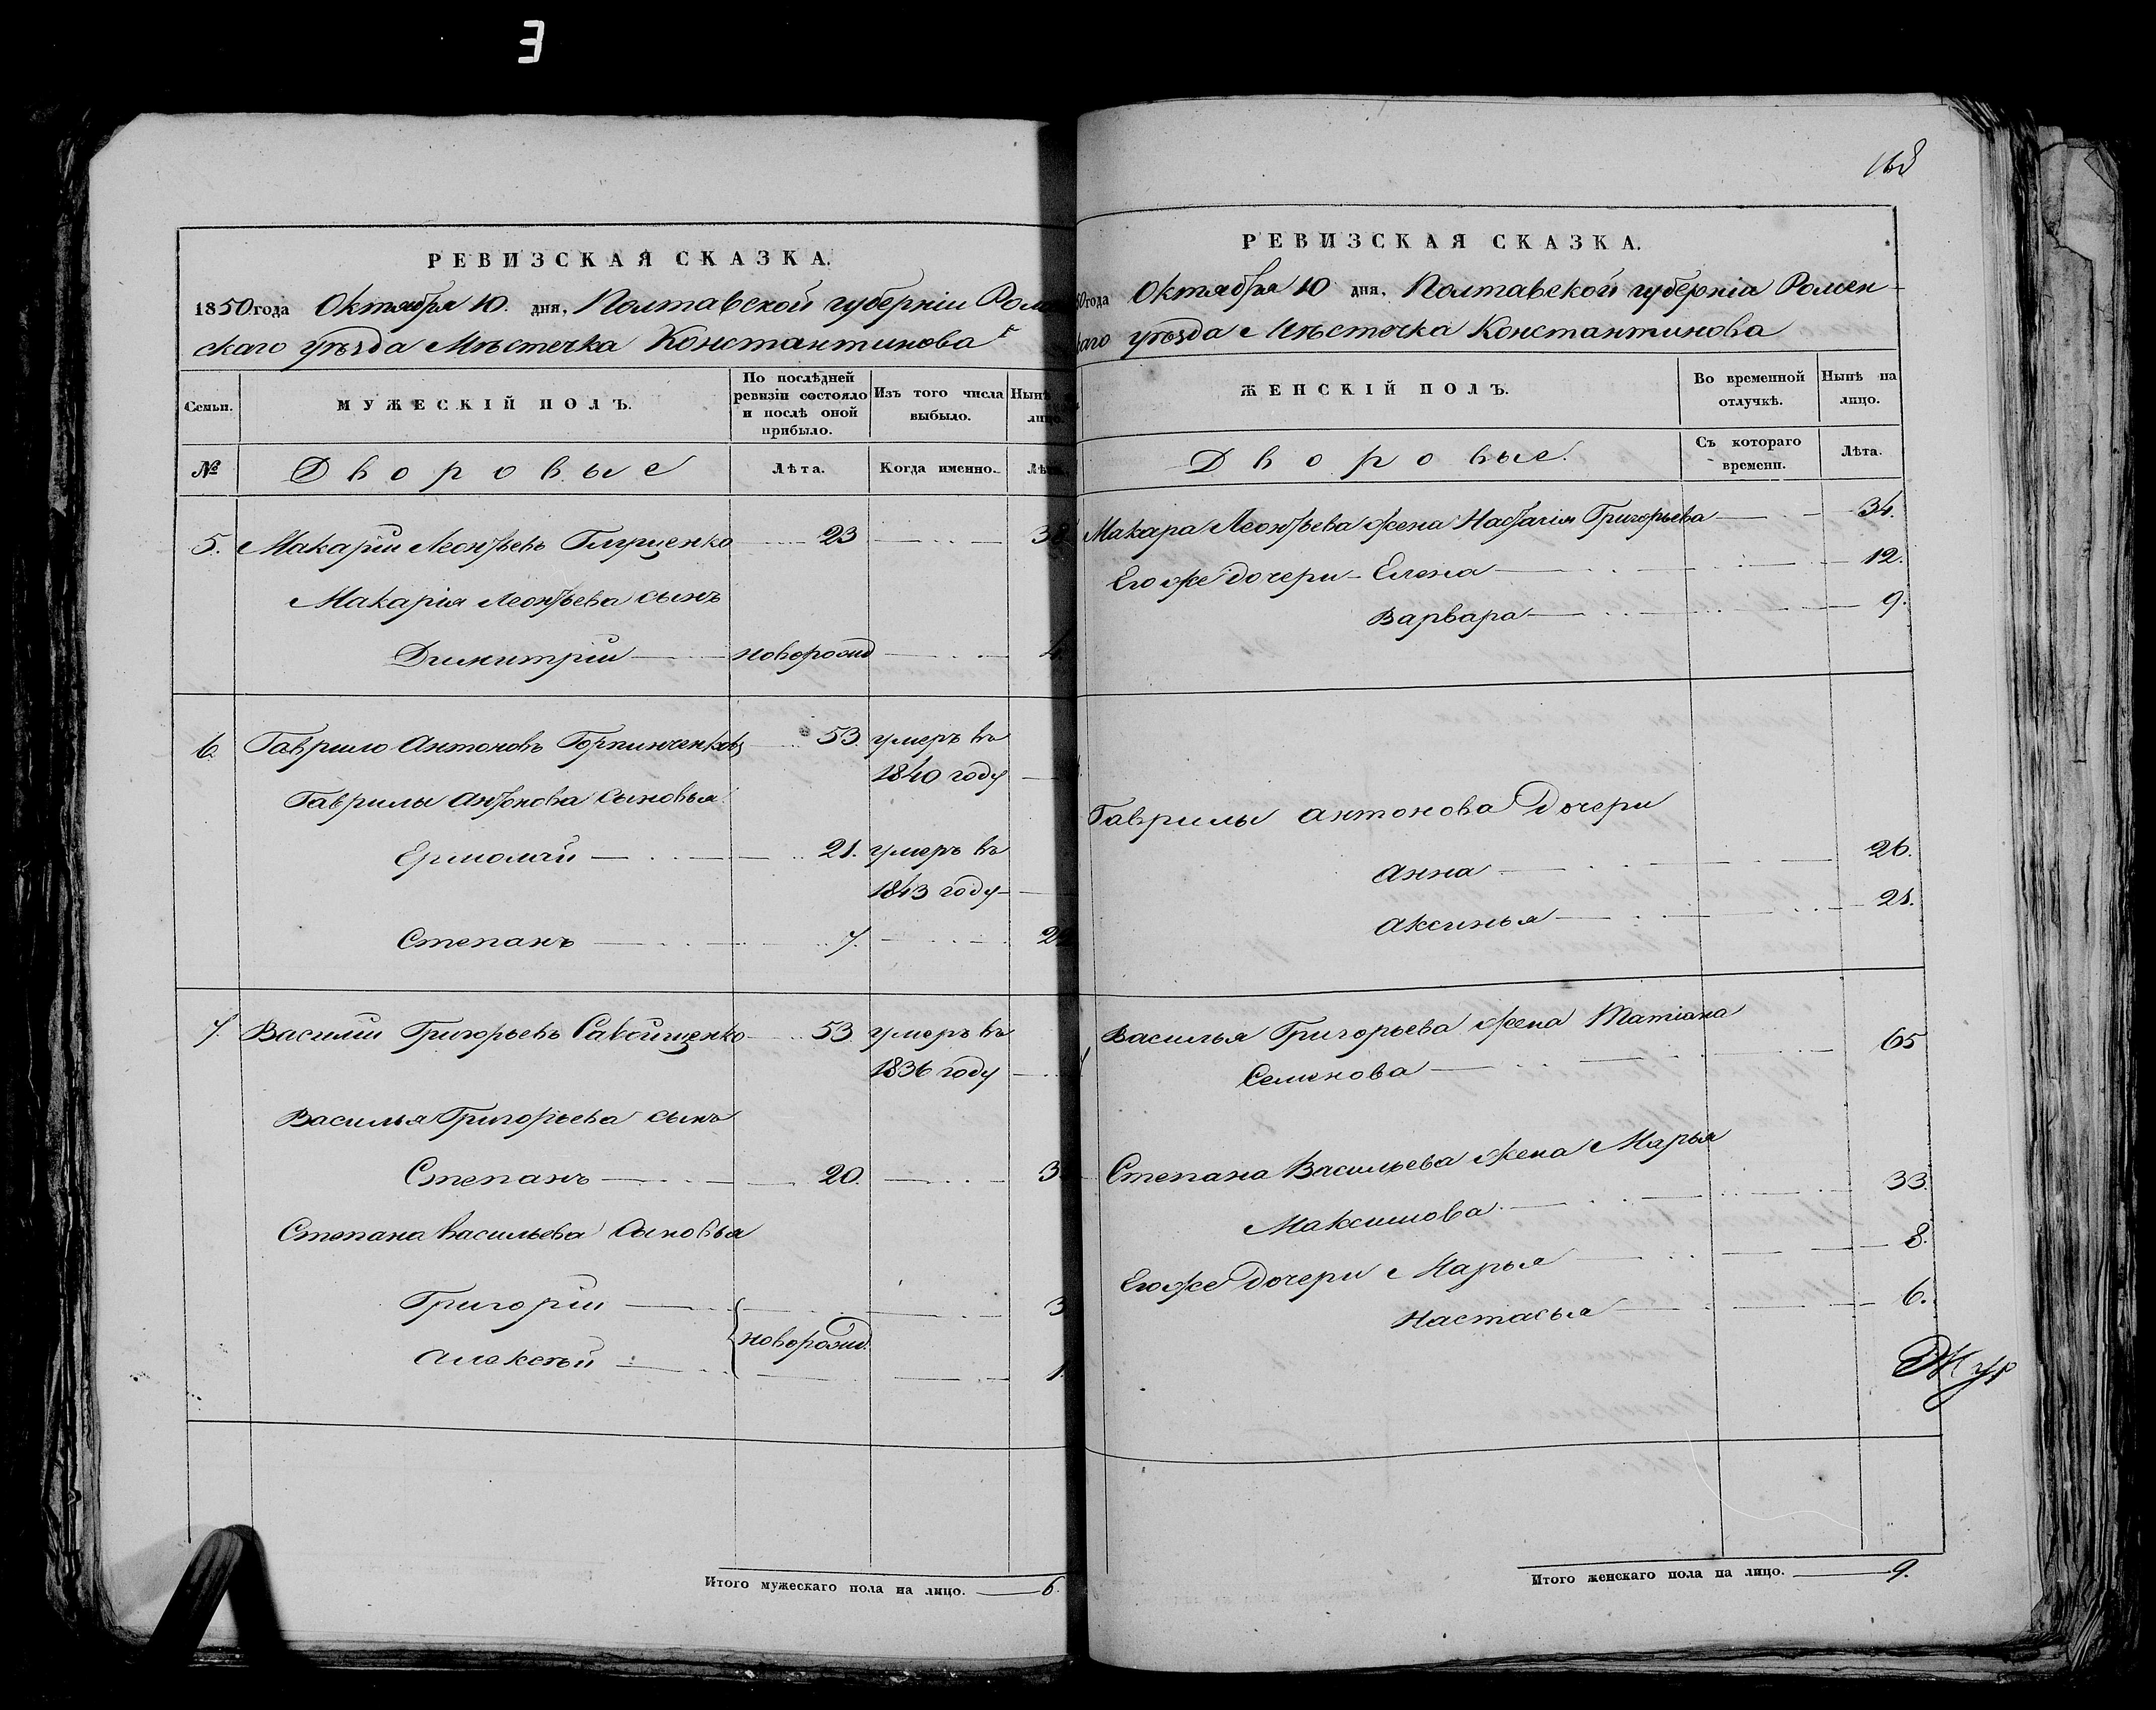 168
РЕВИЗСКАЯ СКАЗКА.
1850 года Октября 10. дня, Полтавской губерніи Ромен
скаго уѣзда Мѣстечка Константинова
Семьи.
МУЖЕСКІЙ ПОЛЪ.
По послѣдней ревизіи состояло и послѣ оной прибыло.
Изъ того числа выбыло.
Нынѣ на лицо.
№
Дворовые
Лѣта.
Когда именно.
Лѣта.
5. Макарій Леонтьевъ Глущенко 23 38
Макарія Леонтьева сынъ
Димитрій новорожд 4.
6. Гаврило Антоновъ Горпинченковъ 53. умеръ въ
1840 году
Гаврилы Антонова сыновья
Ермолай 21. умеръ въ
1843 году
Степанъ 7. 2
7. Василій Григорьевъ 53 умеръ въ
1836 году
Василья Григорьева сынъ
Степанъ 20. 3
Степана Васильева сыновья
Григорій 3
новорожд.
Алексѣй 1.
Итого мужескаго пола на лицо. 6.
РЕВИЗСКАЯ СКАЗКА.
50 года Октября 10 дня, Полтавской губерніи Ромен-
скаго уѣзда Мѣстечка Константинова
ЖЕНСКІЙ ПОЛЪ.
Во временной отлучкѣ.
Нынѣ на лицо.
Дворовые.
Съ котораго времени.
Лѣта.
Макара Леонтьева жена Настасія Григорьева 34.
Его же дочери Елена 12.
Варвара 9.
Гаврилы Антонова дочери
Анна 26.
Аксинья 21.
Василья Григорьева жена Татіана
Семенова 65
Степана Васильева жена Марья
Максимова 33.
Его же дочери Марья 8.
Настасья 6.
Жур
Итого женскаго пола на лицо. 9.